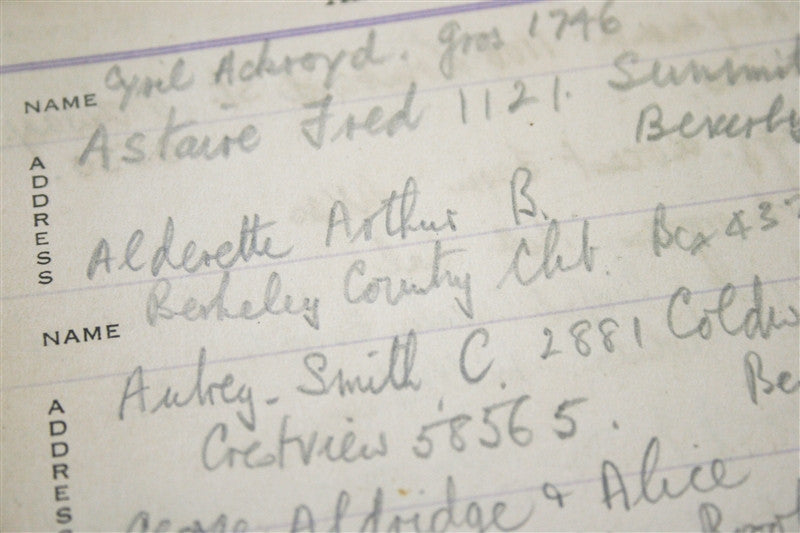 NAME Cyril Ackroyd. Gros 1746
Astaire Fred 1121. Summit
Beverly
ADDRESS
Alderette Arthur B.
Berkeley Country Club. Box 437
NAME
Aubrey-Smith, C. 2881 Coldw
Be
ADDRESS
Crestview 58565.
George Aldridge & Alice